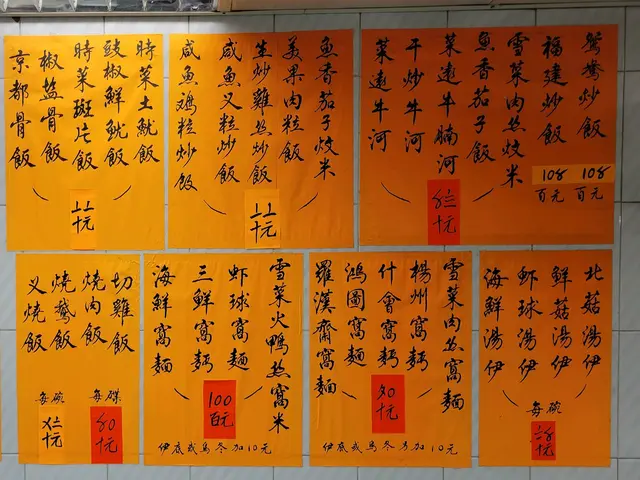 鴛鴦炒飯
福建炒飯
雪菜肉絲炆米
魚香茄子飯
菜遠牛腩河
菜遠牛河
干炒牛河
108
百元
108
百元
十元
魚香茄子炆米
美果肉粒飯
生炒雞絲飯
咸魚叉粒炒飯
咸魚鸡粒炒飯
〦〦
十元
時菜土魷飯
豉椒鮮魷飯
時菜斑片飯
椒盐骨飯
京都骨飯
〦〦
十元
北菇湯伊
鮮菇湯伊
虾球湯伊
海鮮湯伊
每碗
十元
雪菜肉絲窩麵
楊州窩麵
什會窩麵
鴻圖窩麵
羅漢齋窩麵
90
十元
伊底或烏冬另加10元
雪菜火鴨絲窩米
虾球窩麵
三鮮窩麵
海鮮窩麵
100
百元
伊底或烏冬加10元
切雞飯
燒肉飯
燒鵝飯
叉燒飯
每碟
80
十元
每碗
十元